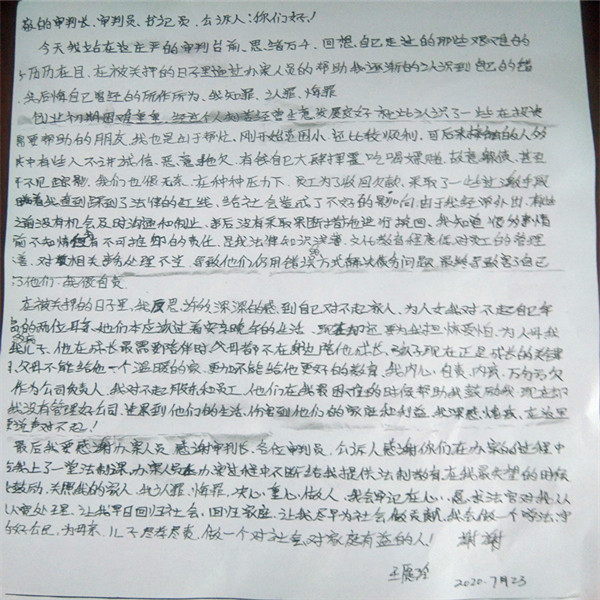 敬的审判长、审判员、书记员、公诉人：你们好！
今天我站在这庄严的审判台前、思绪万千、回想自己走过的那些艰难的
历历在目、在被关押的日子里通过办案人员的帮助我逐渐的认识到自己的错
我后悔自己曾经的所作所为、我知罪、认罪、悔罪
创业初期困难重重、经过个人和 经营 发展变好 认识了一些在投资
需要帮助的朋友、我也是出于帮忙、刚开始范围小、还比较顺利、可后来 的人
其中有些人不讲诚信、恶意拖欠、有些自己大肆挥霍、吃喝嫖赌、故意 、甚至
不见踪影、我们也很无奈、在种种压力下、员工为了收回欠款、采取了一些过激手段
踩到了法律的红线、给社会造成了不好的影响、由于我经常外出、有些
前没有机会及时沟通和制止、事后没有采取果断措施进行挽回、我知道
前不知情但有不可推卸的责任、是我法律知识浅薄、文化教育程度低对员工的管理
善、对相关事务处理不当、导致他们仍用错误方式解决债务问题、最终导致害自己
了他们、我很自责
在被关押的日子里、我反思 深深的感到自己对不起家人、为人女我对不起自己年
的两位母亲、他们本应该过着安享晚年的生活、现在却还要为我担惊受怕、为人母我
我儿子、他在成长最需要陪伴时、父母都不在身边陪他成长、孩子现在正是成长的关键
父母不能给他一个温暖的家、更加不能给他更好的教育、我内心自责、内疚、万分亏欠
作为公司负责人、我对不起股东和员工、他们在我最困难的时候帮助我鼓励我、现在却
我没有管理好公司、连累到他们的生活、伤害到他们的家庭和利益、我深感愧疚、在这里
说声对不起！
最后我要感谢办案人员、感谢审判长、各位审判员、公诉人感谢你们在办案的过程中
给我上了一堂法制课、办案人员在办案过程中不断给我提供法制教育、在我最失望的时候
鼓励、关照我的家人、我认罪、悔罪、决心重心做人、我会牢记在心、恳求法官对我从
从宽处理、让我早日回归社会、回归家庭、让我尽早为社会做贡献、我会做一个学法、守
的好公民、为母亲、儿子尽孝尽责、做一个对社会、对家庭有益的人！ 谢谢
2020.7月23